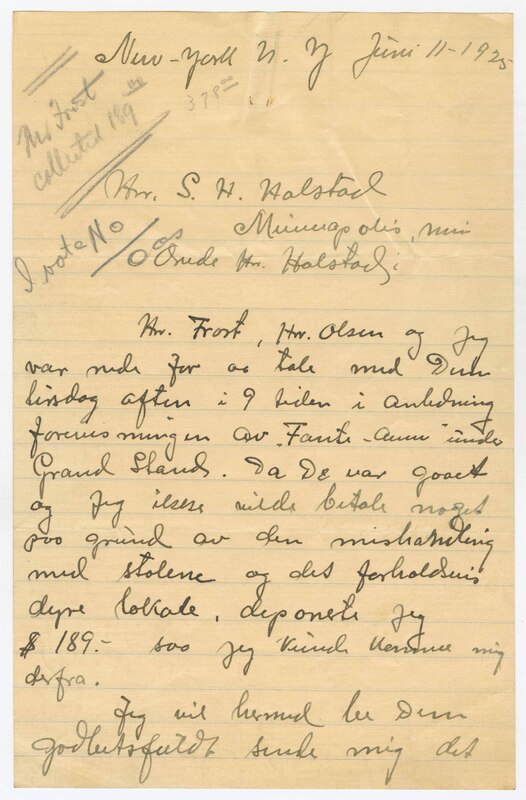 New-York N. Y Juni 11-1925
378 00
Mr Frost
collected 189 00
Hr. S. H. Holstad
Minneapolis, min
I vote No
Ærede Hr. Holstad;
Hr. Frost, Hr. Olsen og jeg
var nede for aa tale med Dem
tirsdag aften i 9 tiden i anledning
forevisningen av "Fante-Anne" under
Grand Stand. Da De var gaaet
og jeg ikke vilde betale noget
paa grund av den mishandling
med stolene og det forholdsvis
dyre lokale, deponerte jeg
$ 189.- saa jeg kunde komme mig
derfra.
Jeg vil hermed be Dem
godhetsfuldt sende mig det